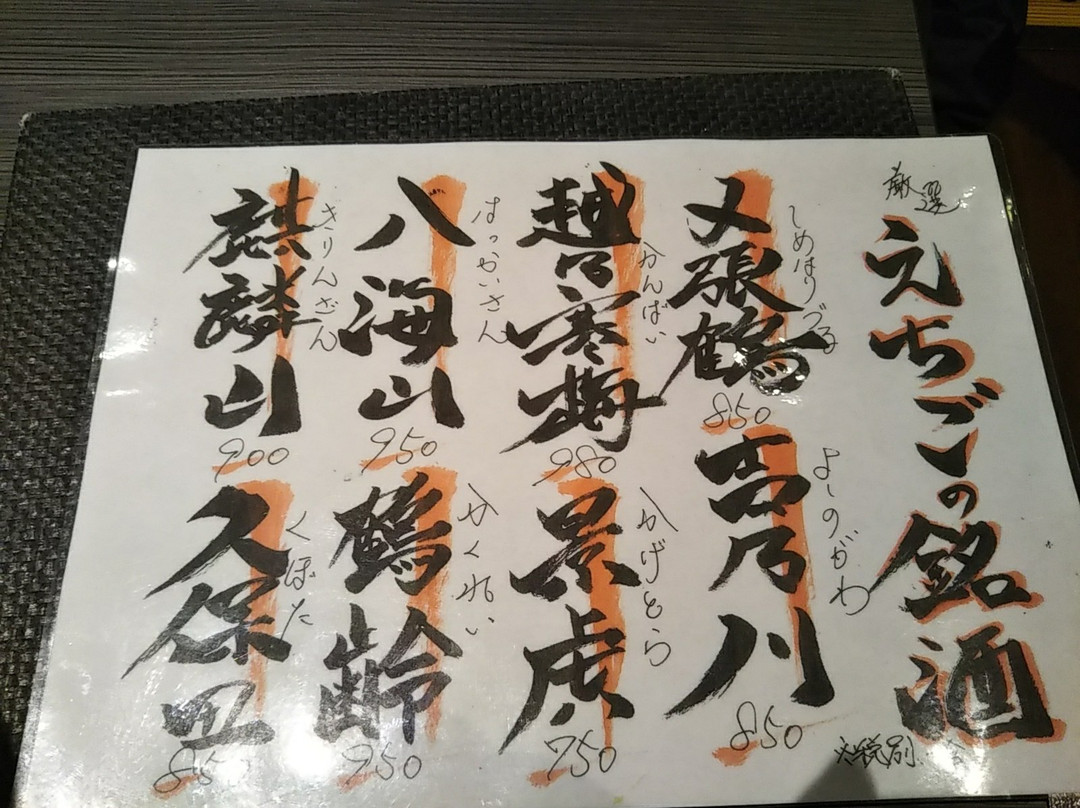 厳選
えちごの銘酒
※税別
〆張鶴
しめはりづる
850
吉乃川
よしのがわ
850
越乃寒梅
かんばい
980
景虎
かげとら
750
八海山
はっかいさん
950
鶴齢
かくれい
950
麒麟山
きりんざん
900
久保田
くぼた